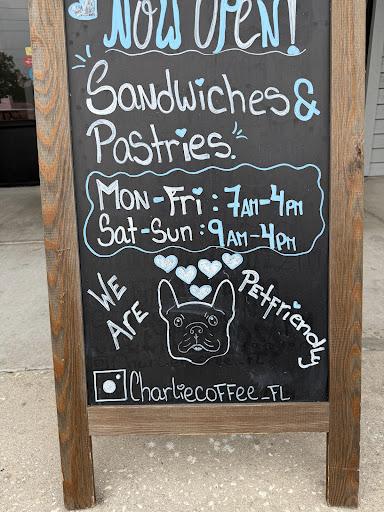 Now open!
Sandwiches &
Pastries.
Mon-Fri : 7AM-4PM
Sat-Sun : 9AM-4PM
We Are
Petfriendly
Charliecoffee_FL